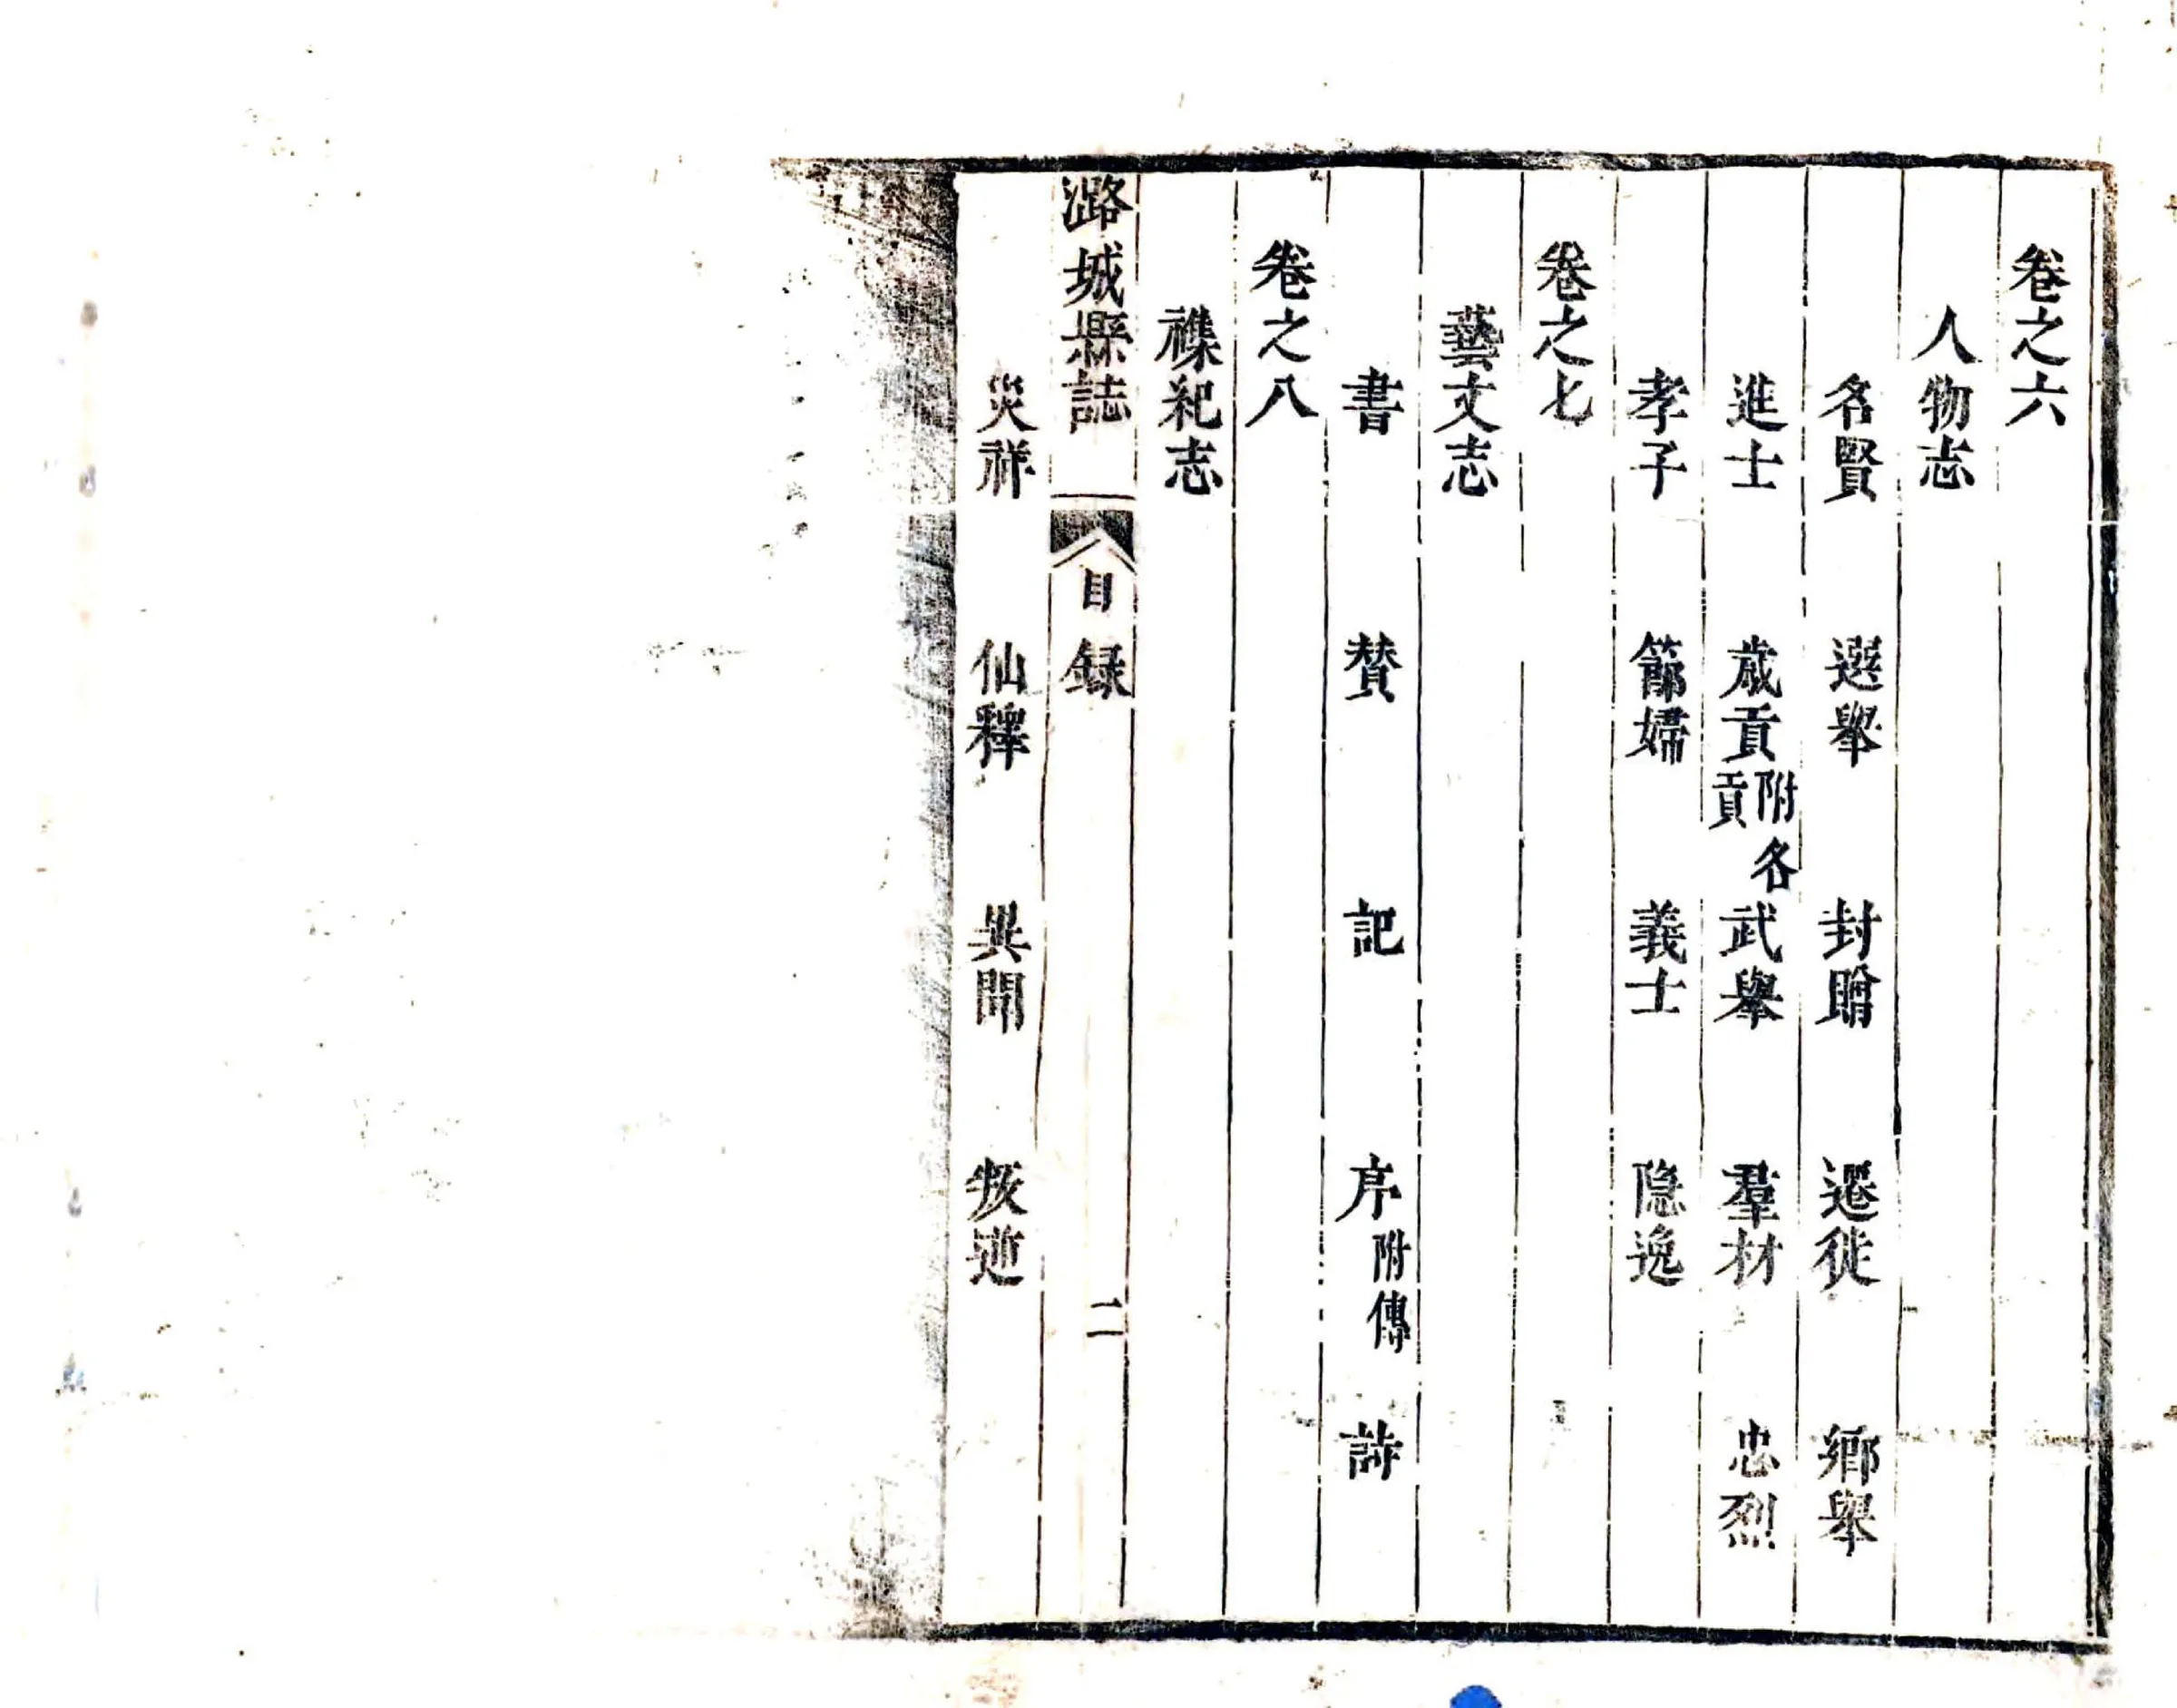 卷之六
人物志
名賢 選舉 封贈 遷徙 鄉舉
進士 歲貢附各貢 武舉 羣材 忠烈
孝子 節婦 義士 隐逸
卷之七
藝文志
書 贊 記 序附傳 詩
卷之八
襍紀志
潞城縣誌 目録 二
災祥 仙釋 異聞 叛逆